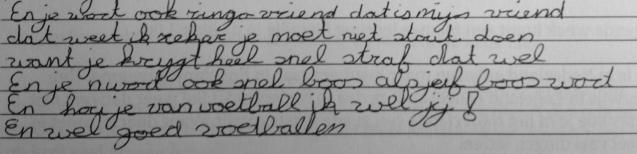 En je wort ook ringo vriend dat is mijn vriend
dat weet ik zeker je moet niet stout doen
want je krijgt heel snel straf dat wel
En je word ook snel boos als jelf boos wort
En hou je van voetball ik wel jij?
En wel goed voetballen